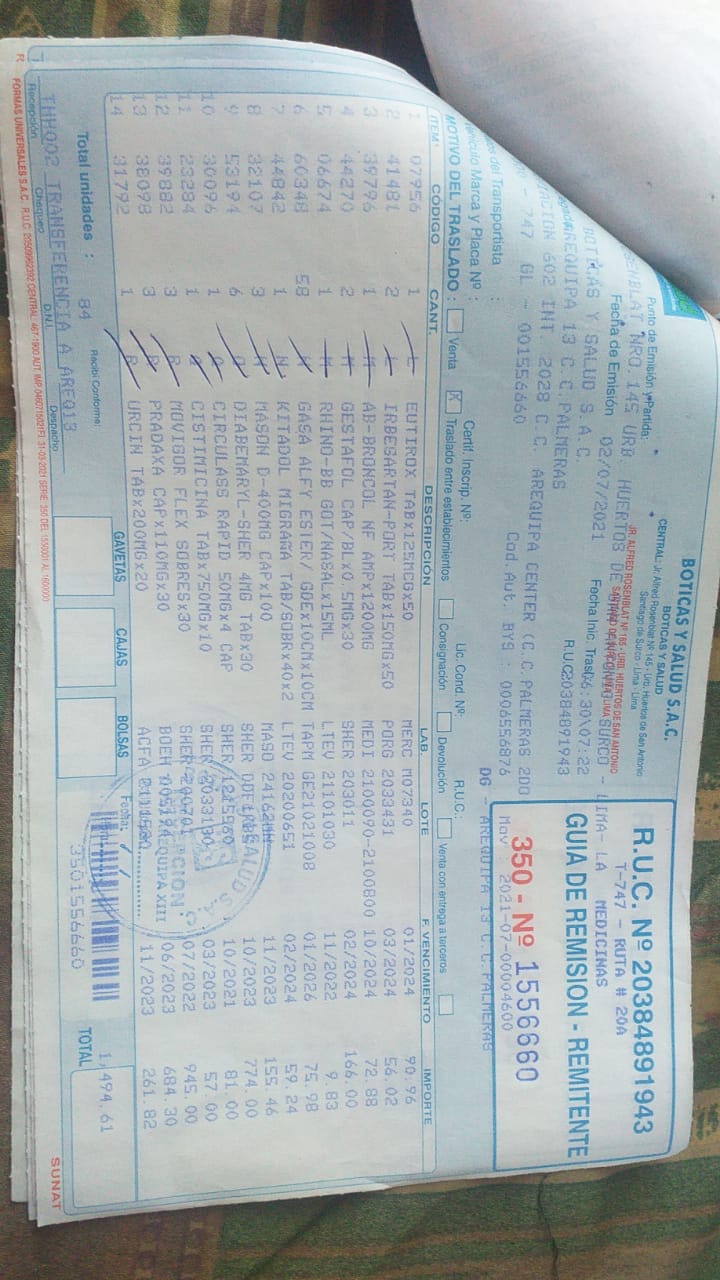 BOTICAS Y SALUD S.A.C.
BOTICAS Y SALUD
CENTRAL: Jr. Alfred Rosenblat Nº 145 - Urb. Huertos de San Antonio
Santiago de Surco - Lima - Lima
R.U.C. Nº 20384891943
T-747 - RUTA # 20A
LIMA- LA MEDICINAS
GUIA DE REMISION - REMITENTE
350 - Nº 1556660
Mov : 2021-07-00004600
Punto de Emisión y Partida:
JR. ALFRED ROSENBLAT Nº 165 - URB. HUERTOS DE SAN ANTONIO
SENBLAT NRO 145 URB. HUERTOS DE
SURCO -
Fecha de Emisión 02/07/2021
Fecha Inic. Tras
06:30\07:22
BOTICAS Y SALUD S.A.C.
R.U.C.
20384891943
AREQUIPA 13 C.C.PALMERAS
ACION 602 INT. 2028 C.C. AREQUIPA CENTER (C.C.PALMERAS 2DO
- 747 GL - 001556660
Cod.Aut. BYS : 0006556876
DG - AREQUIPA 13 C.C.PALMERAS
os del Transportista :
Vehículo Marca y Placa Nº :
Certif. Inscrip. Nº:
Lic. Cond. Nº:
R.U.C.:
MOTIVO DEL TRASLADO :
Venta
X
Traslado entre establecimientos
Consignación
Devolución
Venta con entrega a terceros
ITEM CÓDIGO CANT. DESCRIPCIÓN LAB. LOTE F. VENCIMIENTO IMPORTE
1 07956 1 L EUTIROX TABx125MCGx50 MERC M07340 01/2024 90.96
2 41481 2 L IRBESARTAN-PORT TABx150MGx50 PORG 2033431 03/2024 56.02
3 39796 1 M AB-BRONCOL NF AMPx1200MG MEDI 2100090-2100800 10/2024 72.88
4 44270 2 M GESTAFOL CAP/BLx0.5MGx30 SHER 203011 02/2024 166.00
5 06674 1 M RHINO-BB GOT/NASALx15ML LTEV 21101030 11/2022 9.83
6 60348 58 M GASA ALFY ESTER/ GDEx10CMx10CM TAPM GE21021008 01/2026 75.98
7 44842 1 N KITADOL MIGRAÑA TAB/SOBRx40x2 LTEV 20200651 02/2024 59.24
8 32107 3 MASON D-400MG CAPx100 MASO 11/2023 155.46
9 53194 6 DIABEMARYL-SHER 4MG TABx30 SHER 10/2023 774.00
10 30096 1 CIRCULASS RAPID 50MGx4 CAP SHER 10/2021 81.00
11 23284 1 CISTIMICINA TABx750MGx10 SHER 03/2023 57.00
12 39882 3 MOVIGOR FLEX SOBRESx30 SHER 07/2022 945.00
13 38098 3 PRADAXA CAPx110MGx30 BOEH 06/2023 684.30
14 31792 1 R URCIN TABx200MGx20 ACFA 11/2023 261.82
Total unidades : 84
TNH002 TRANSFERENCIA A AREQ13
Recibí Conforme:
Recepción Chequeo D.N.I. Despacho
GAVETAS
CAJAS
BOLSAS
Fecha: / /
3501556660
TOTAL
1,494.61
SUNAT